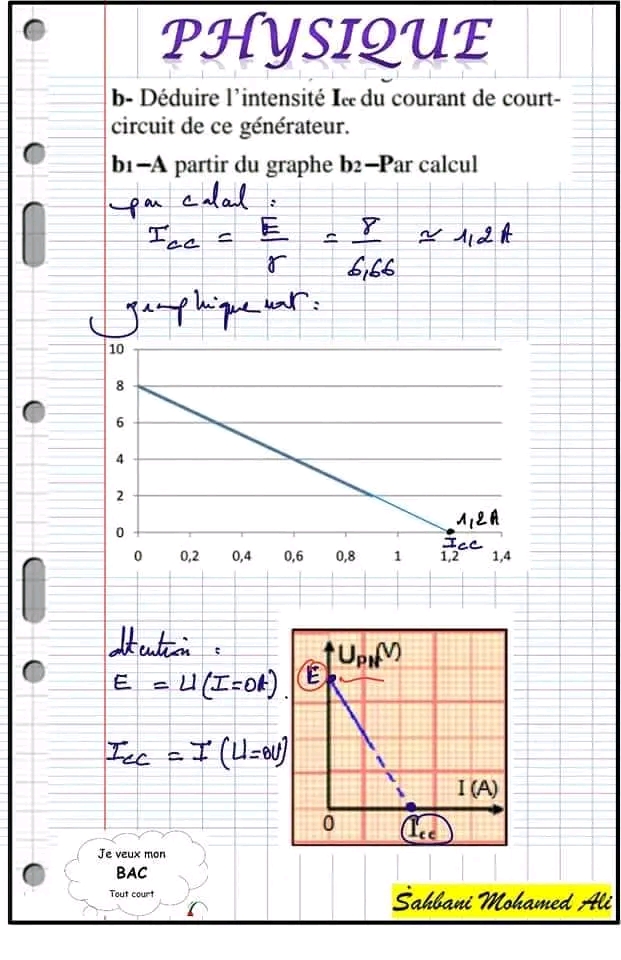 PHYSIQUE
b- Déduire l'intensité Icc du courant de court-
circuit de ce générateur.
b1–A partir du graphe b2–Par calcul
par calcul :
Icc = E/r = 8/6,66 ≃ 1,2 A
graphiquement :
10
8
6
4
2
0
1,2 A
Icc
0 0,2 0,4 0,6 0,8 1 1,2 1,4
Attention :
E = U (I=0A).
Icc = I (U=0V)
UPN(V)
E
I (A)
0
Icc
Je veux mon
BAC
Tout court
Sahbani Mohamed Ali